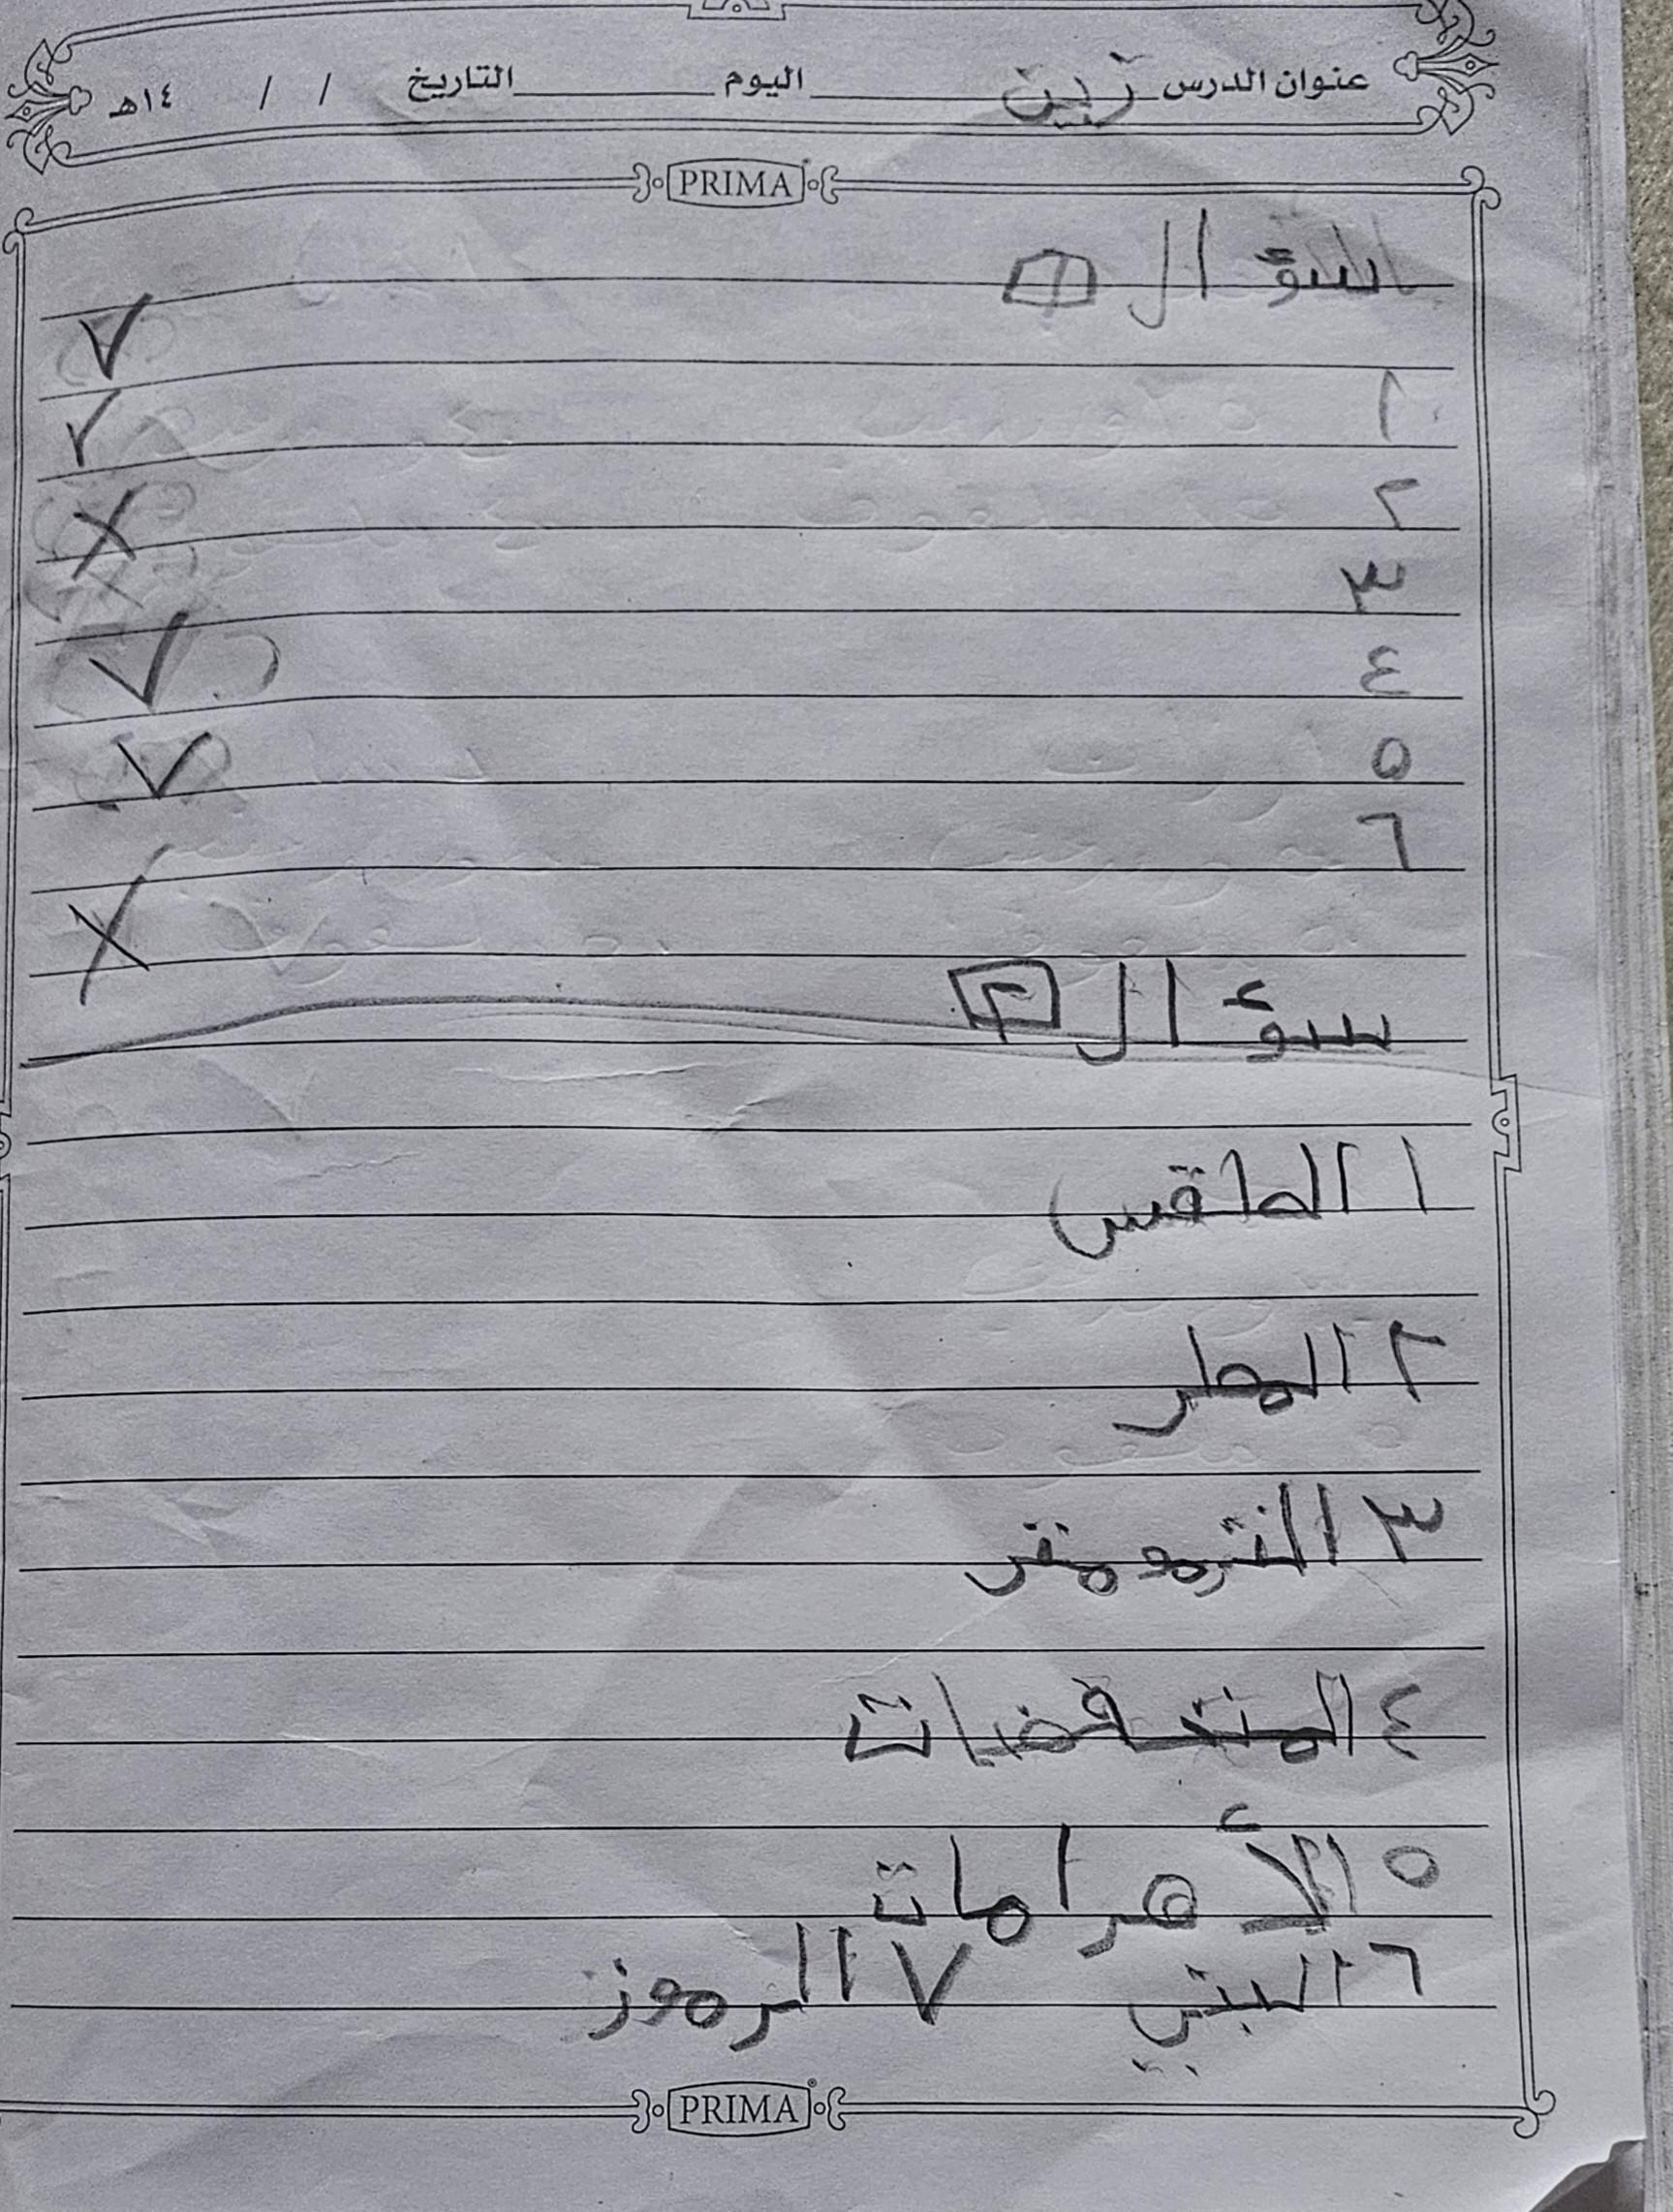 عنوان الدرس زين اليوم التاريخ / / ١٤هـ
PRIMA
السؤال ١
✓
١ ✓
٢ X
٣
٤ ✓
٥ ✓
٦
X
سؤال ٢
١ الطقس
٢ المطر
٣ الترمومتر
٤ المنخفضات
٥ الأهرامات
٦ البني ٧ الرموز
PRIMA